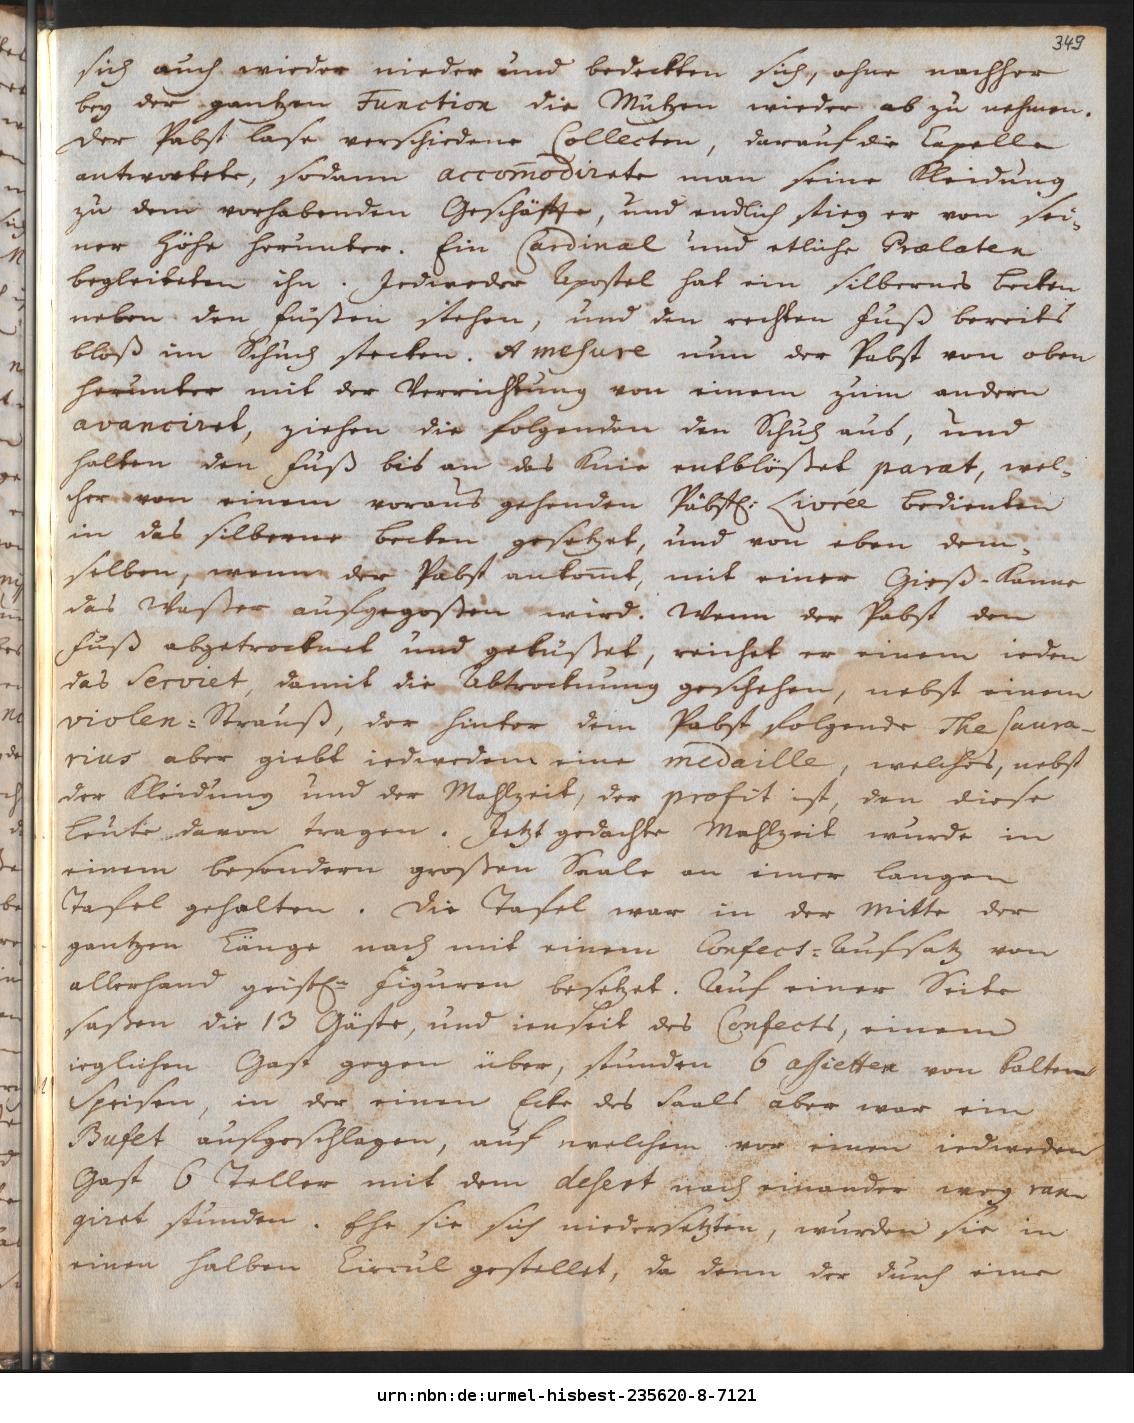 349
sich auch wieder nieder und bedeckten sich, ohne nachher
bey der gantzen Function die Mützen wieder ab zu nehmen.
Der Pabst lase verschiedene Collecten, darauf die Capelle
antwortete, sodann accom̄odirete man seine Kleidung
zu dem vorhabenden Geschäffte, und endlich stieg er von sei-
ner Höhe herunter. Ein Cardinal und etliche Prælaten
begleiteten ihn. Jedweder Apostel hat ein silbernes Becken
neben den Füßen stehen, und den rechten Fuß bereits
bloß im Schuch stecken. A mesure nun der Pabst von oben
herunter mit der Verrichtung von einem zum andern
avanciret, ziehen die folgenden den Schuch aus, und
halten den Fuß bis an das Knie entblößet parat, wel-
cher von einem voraus gehenden Päbstl: Livrée Bedienten
in das silberne Becken gesetzet, und von eben dem-
selben, wenn der Pabst ankom̄t, mit einer Gieß-Kanne
das Waßer aufgegoßen wird. Wenn der Pabst den
Fuß abgetrocknet und geküßet, reichet er einem ieden
das Serviet, damit die Abtrocknung geschehen, nebst einem
violen-Strauß, der hinter dem Pabst folgende Thesaura-
rius aber giebt iedwedem eine medaille, welches, nebst
der Kleidung und der Mahlzeit, der profit ist, den diese
Leute davon tragen. Jetzt gedachte Mahlzeit wurde in
einem besondern großen Saale an einer langen
Tafel gehalten. Die Tafel war in der Mitte der
gantzen Länge nach mit einem Confect-Aufsatz von
allerhand geistl. Figuren besetzet. Auf einer Seite
saßen die 13 Gäste, und ienseit des Confects, einem
ieglichen Gast gegen über, stunden 6 assietten von kalten
Speisen, in der einen Ecke des Saals aber war ein
Bufet aufgeschlagen, auf welchem vor einen iedweden
Gast 6 Teller mit dem desert nach einander weg ran-
giret stunden. Ehe sie sich niedersetzten, wurden sie in
einen halben Circul gestellet, da denn der durch eine
urn:nbn:de:urmel-hisbest-235620-8-7121